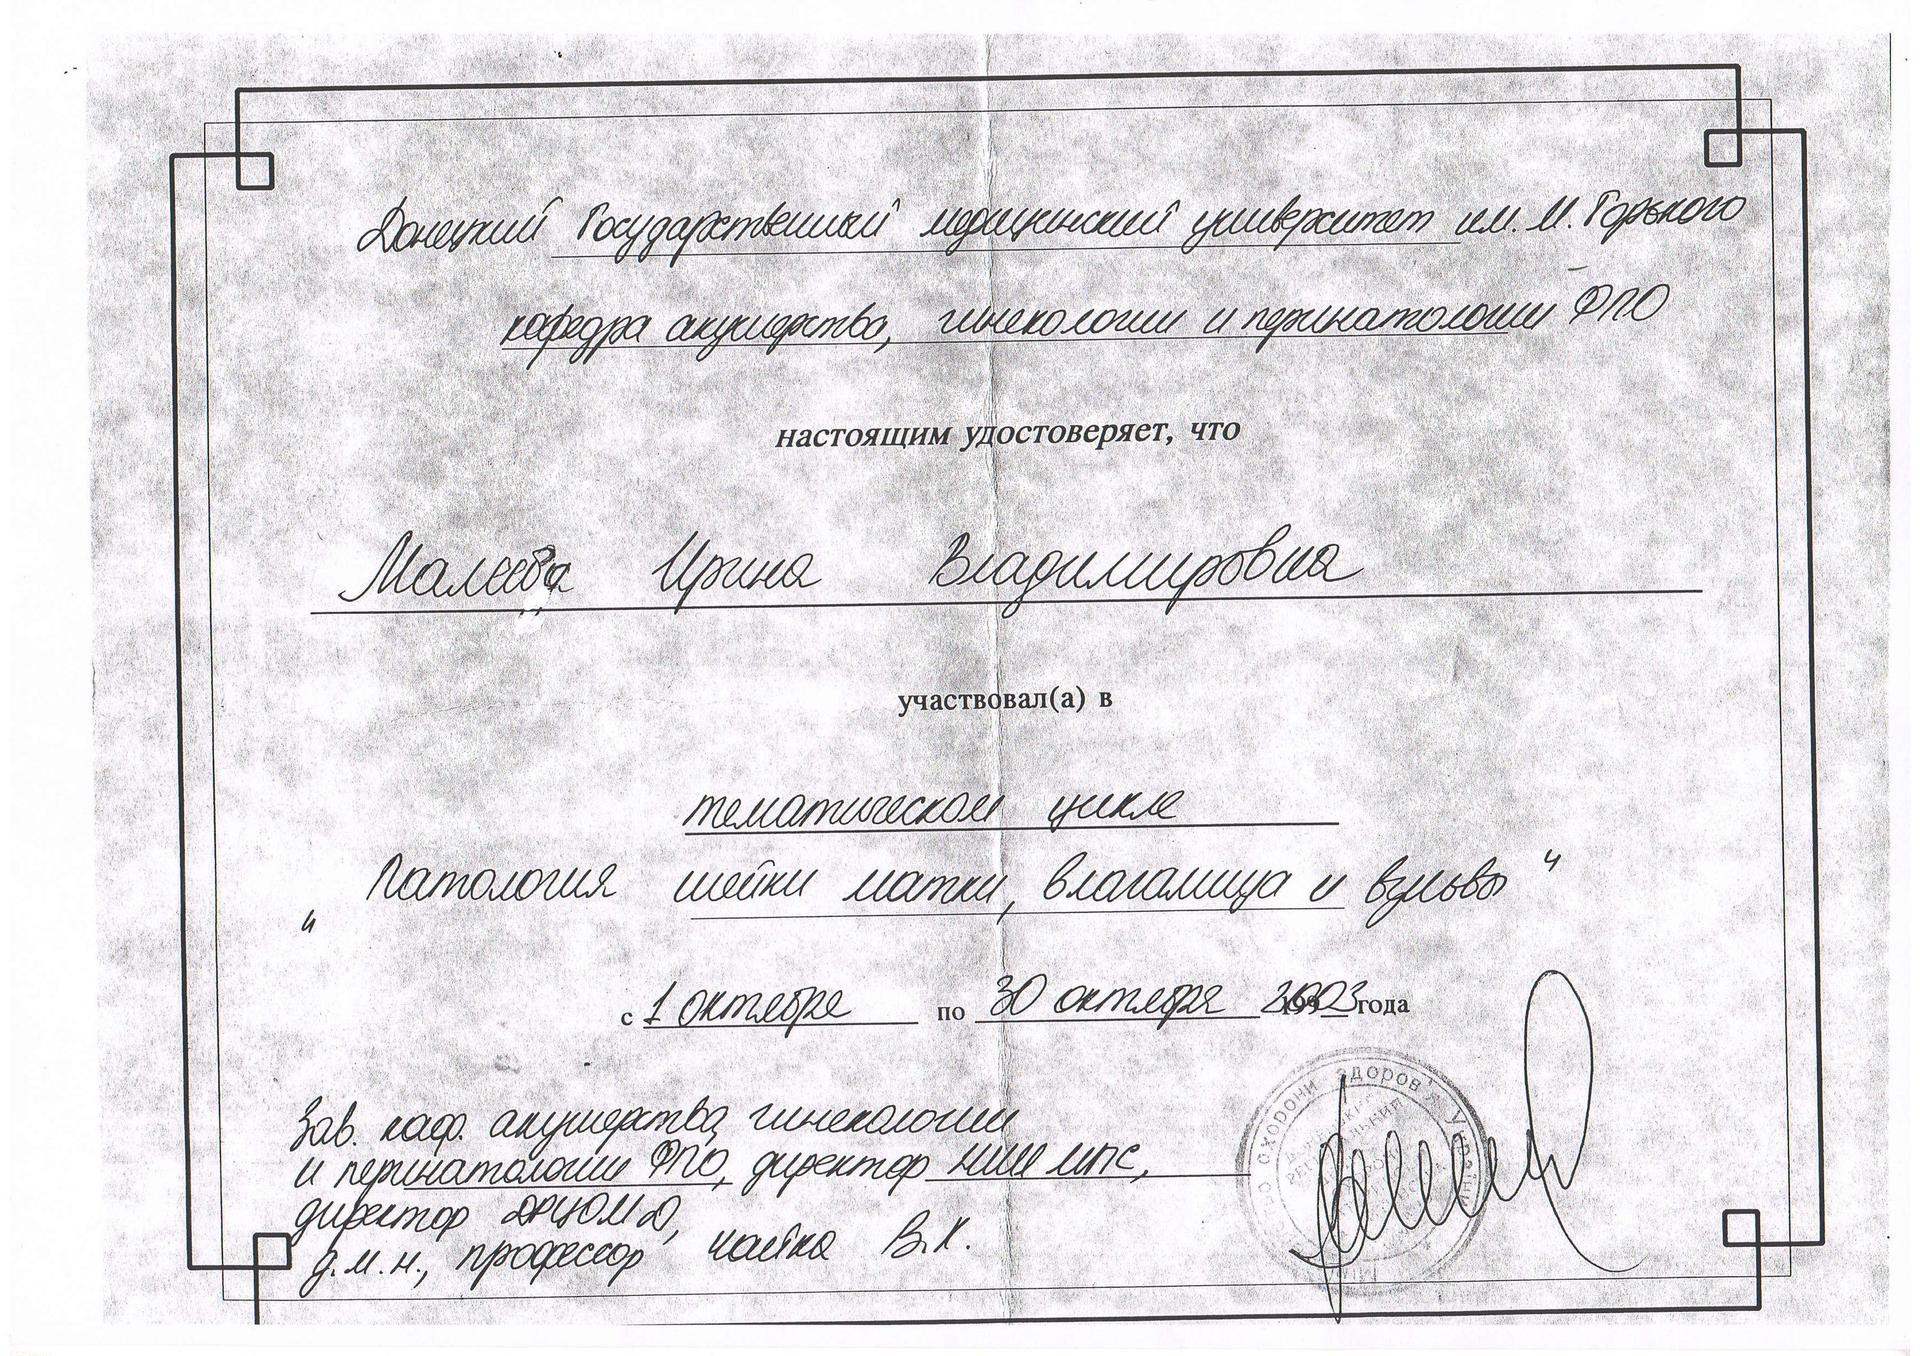 Донецкий Государственный медицинский университет им. М. Горького
кафедра акушерства, гинекологии и перинатологии ФПО
настоящим удостоверяет, что
Малеева Ирина Владимировна
участвовал(а) в
тематическом цикле
"Патология шейки матки, влагалища и вульвы"
с 1 октября по 30 октября 2003 года
Зав. каф. акушерства, гинекологии
и перинатологии ФПО, директор НИИ МПС,
директор ДРЦОМД,
д.м.н., профессор Чайка В.К.
охорони здоров'я України